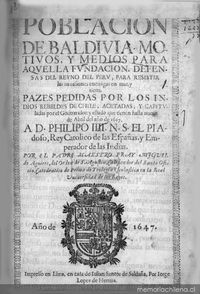 POBLACION
DE BALDIVIA. MO-
TIVOS, Y MEDIOS PARA
AQVELLA FVNDACION. DEFEN-
SAS DEL REYNO DEL PERV, PARA RESISTIR
las invasiones enemigas en mar, y
tierra.
PAZES PEDIDAS POR LOS IN-
DIOS REBELDES DE CHILE, ACETADAS, Y CAPITV-
ladas por el Governador: y estado que tienen hasta nueve
de Abril del año de 1647.
A D. PHILIPO IIII. N. S. EL PIA-
doso, Rey Catolico de las Españas, y Em-
perador de las Indias.
POR EL PADRE MAESTRO FRAY MIGVEL
de Aguirre, del Orden de
Año de
1647.
Impresso en Lima, en casa de Iulian Santos de Saldaña, Por Iorge
Lopez de Herrera.
www.memoriachilena.cl